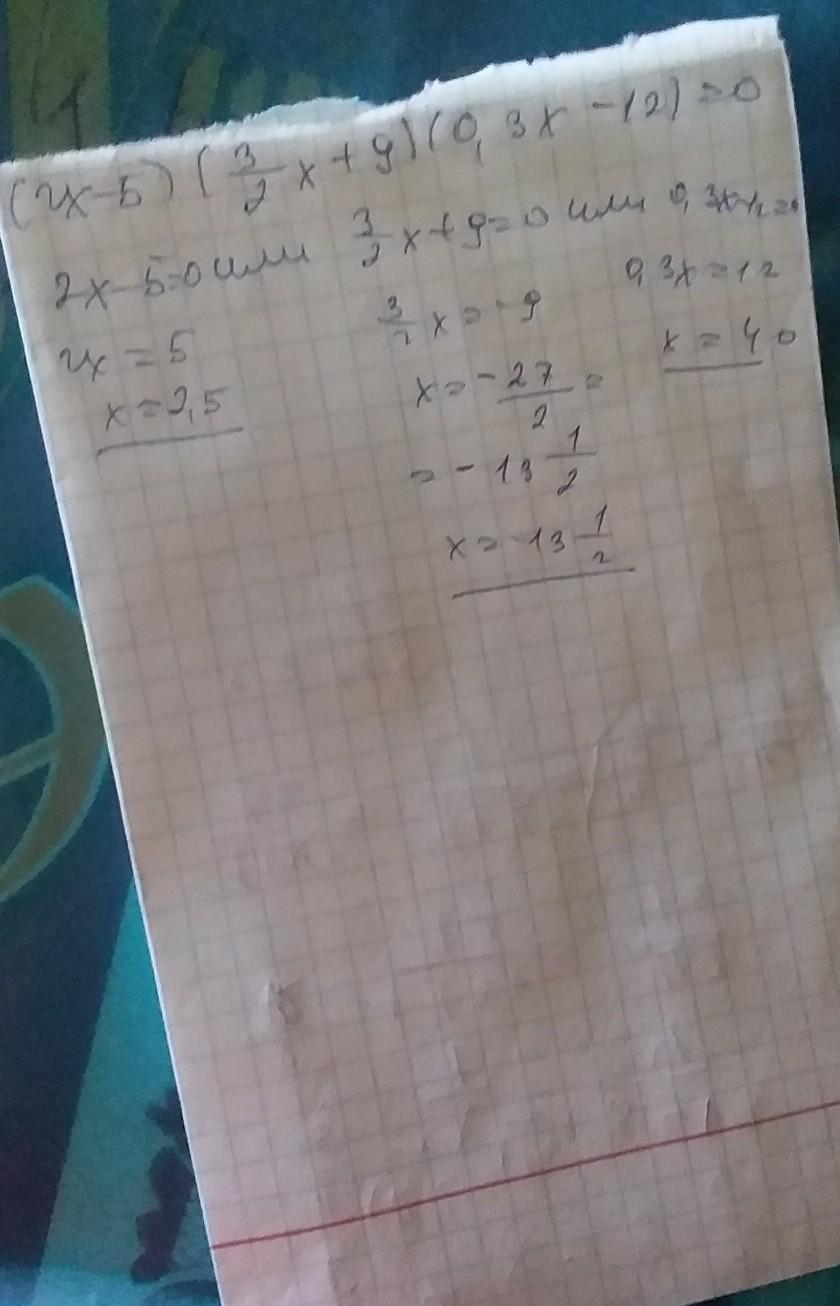 (2x-5)(3/2 x+9)(0,3x-12)=0
2x-5=0 или 3/2 x+9=0 или 0,3x-12=0
2x=5 3/2 x=-9 0,3x=12
x=2,5 x=-27/2= x=40
=-13 1/2
x=-13 1/2